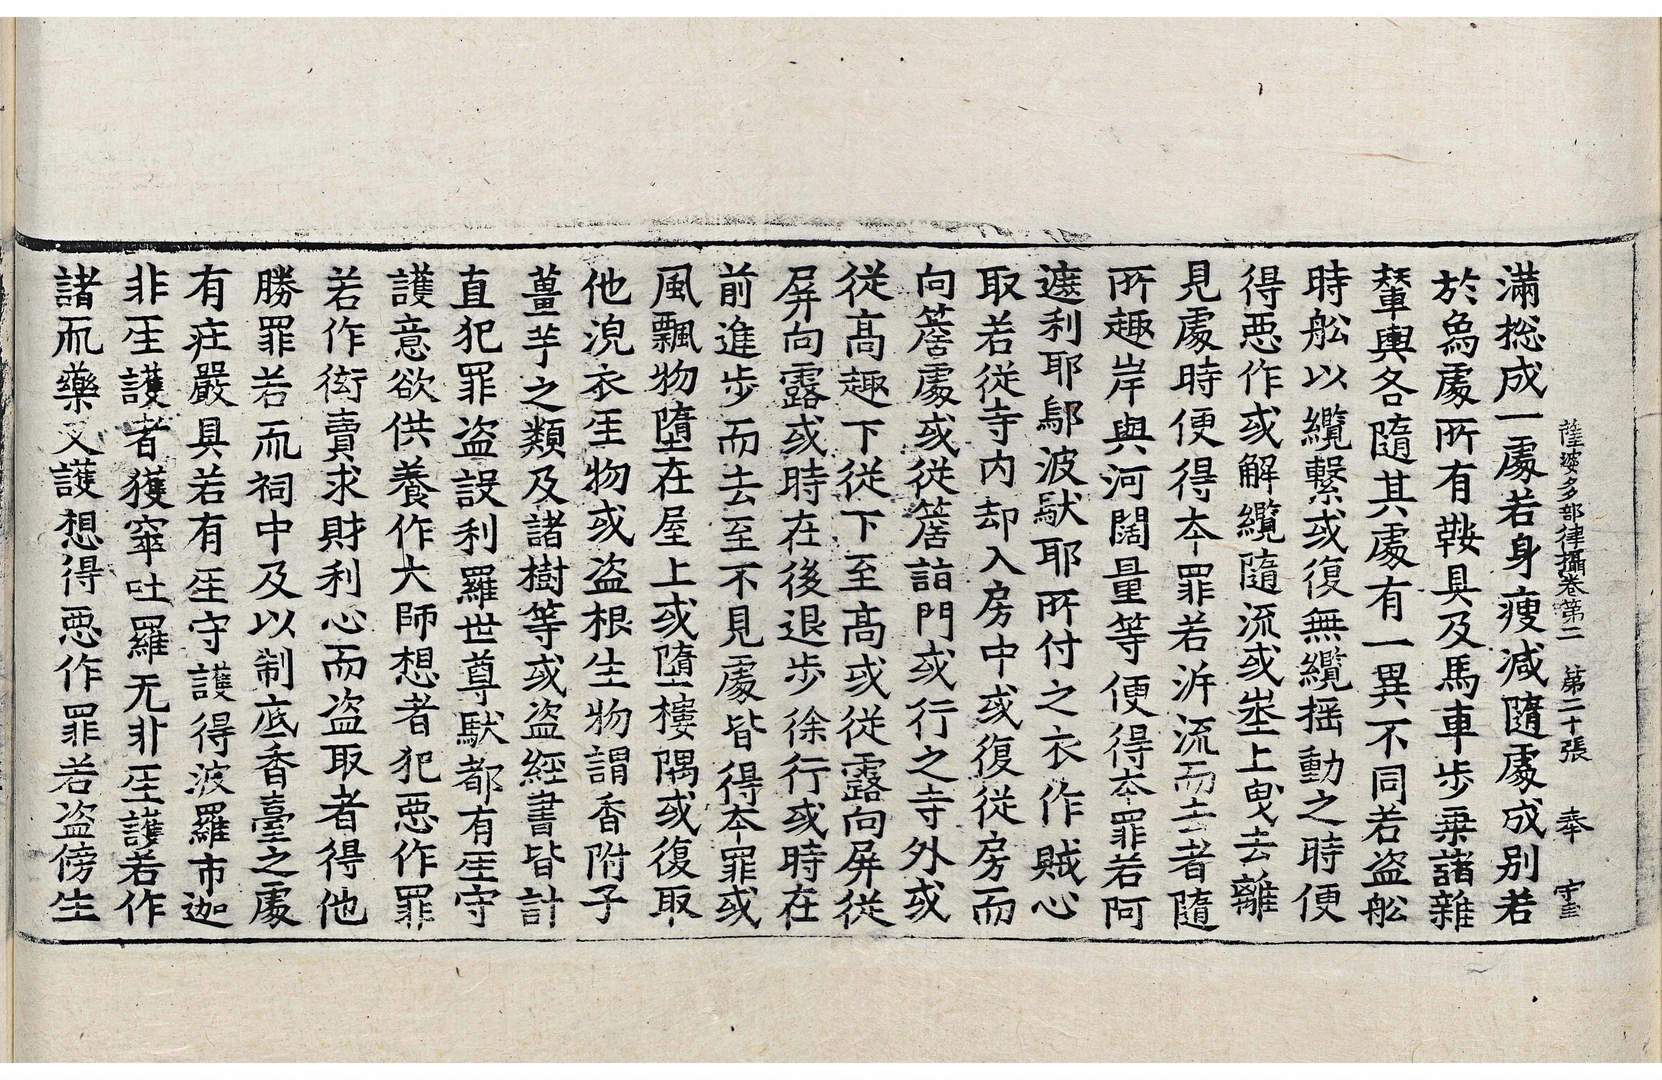 薩婆多部律攝卷第二　第二十張　奉　宇三
滿㧾成一䖏若身瘦減隨䖏成別若
於烏䖏所有鞍具及馬車步乗諸雜
輦輿各隨其䖏有一異不同若盗舩
時舩以纜繫或復無纜揺動之時便
得惡作或解纜隨流或岸上曳去離
見䖏時便得夲罪若泝流而去者隨
所趣岸與河闊量等便得夲罪若阿
遮利耶鄔波馱耶所付之衣作賊心
取若從寺内却入房中或復從房而
向簷䖏或從簷詣門或行之寺外或
從髙趣下從下至髙或從露向屏從
屏向露或時在後退步徐行或時在
前進步而去至不見䖏皆得夲罪或
風飄物墮在屋上或墮樓隅或復取
他浣衣生物或盗根生物謂香附子
薑芋之類及諸樹等或盗經書皆計
直犯罪盗設利羅世尊馱都有主守
護意欲供養作大師想者犯惡作罪
若作衒賣求財利心而盗取者得他
勝罪若於祠中及以制底香臺之䖏
有莊嚴具若有主守護得波羅市迦
非主護者獲窣吐羅无非主護若作
諸而藥叉護想得惡作罪若盗傍生